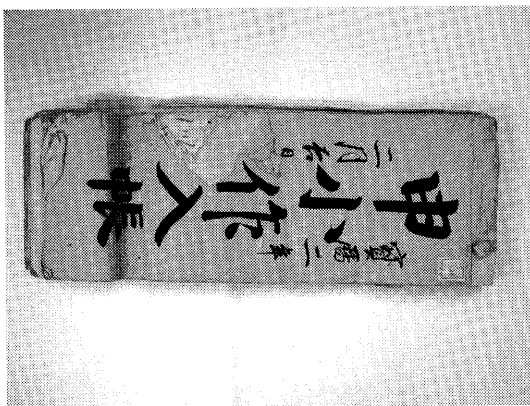 二年
申小作入帳
二月吉日